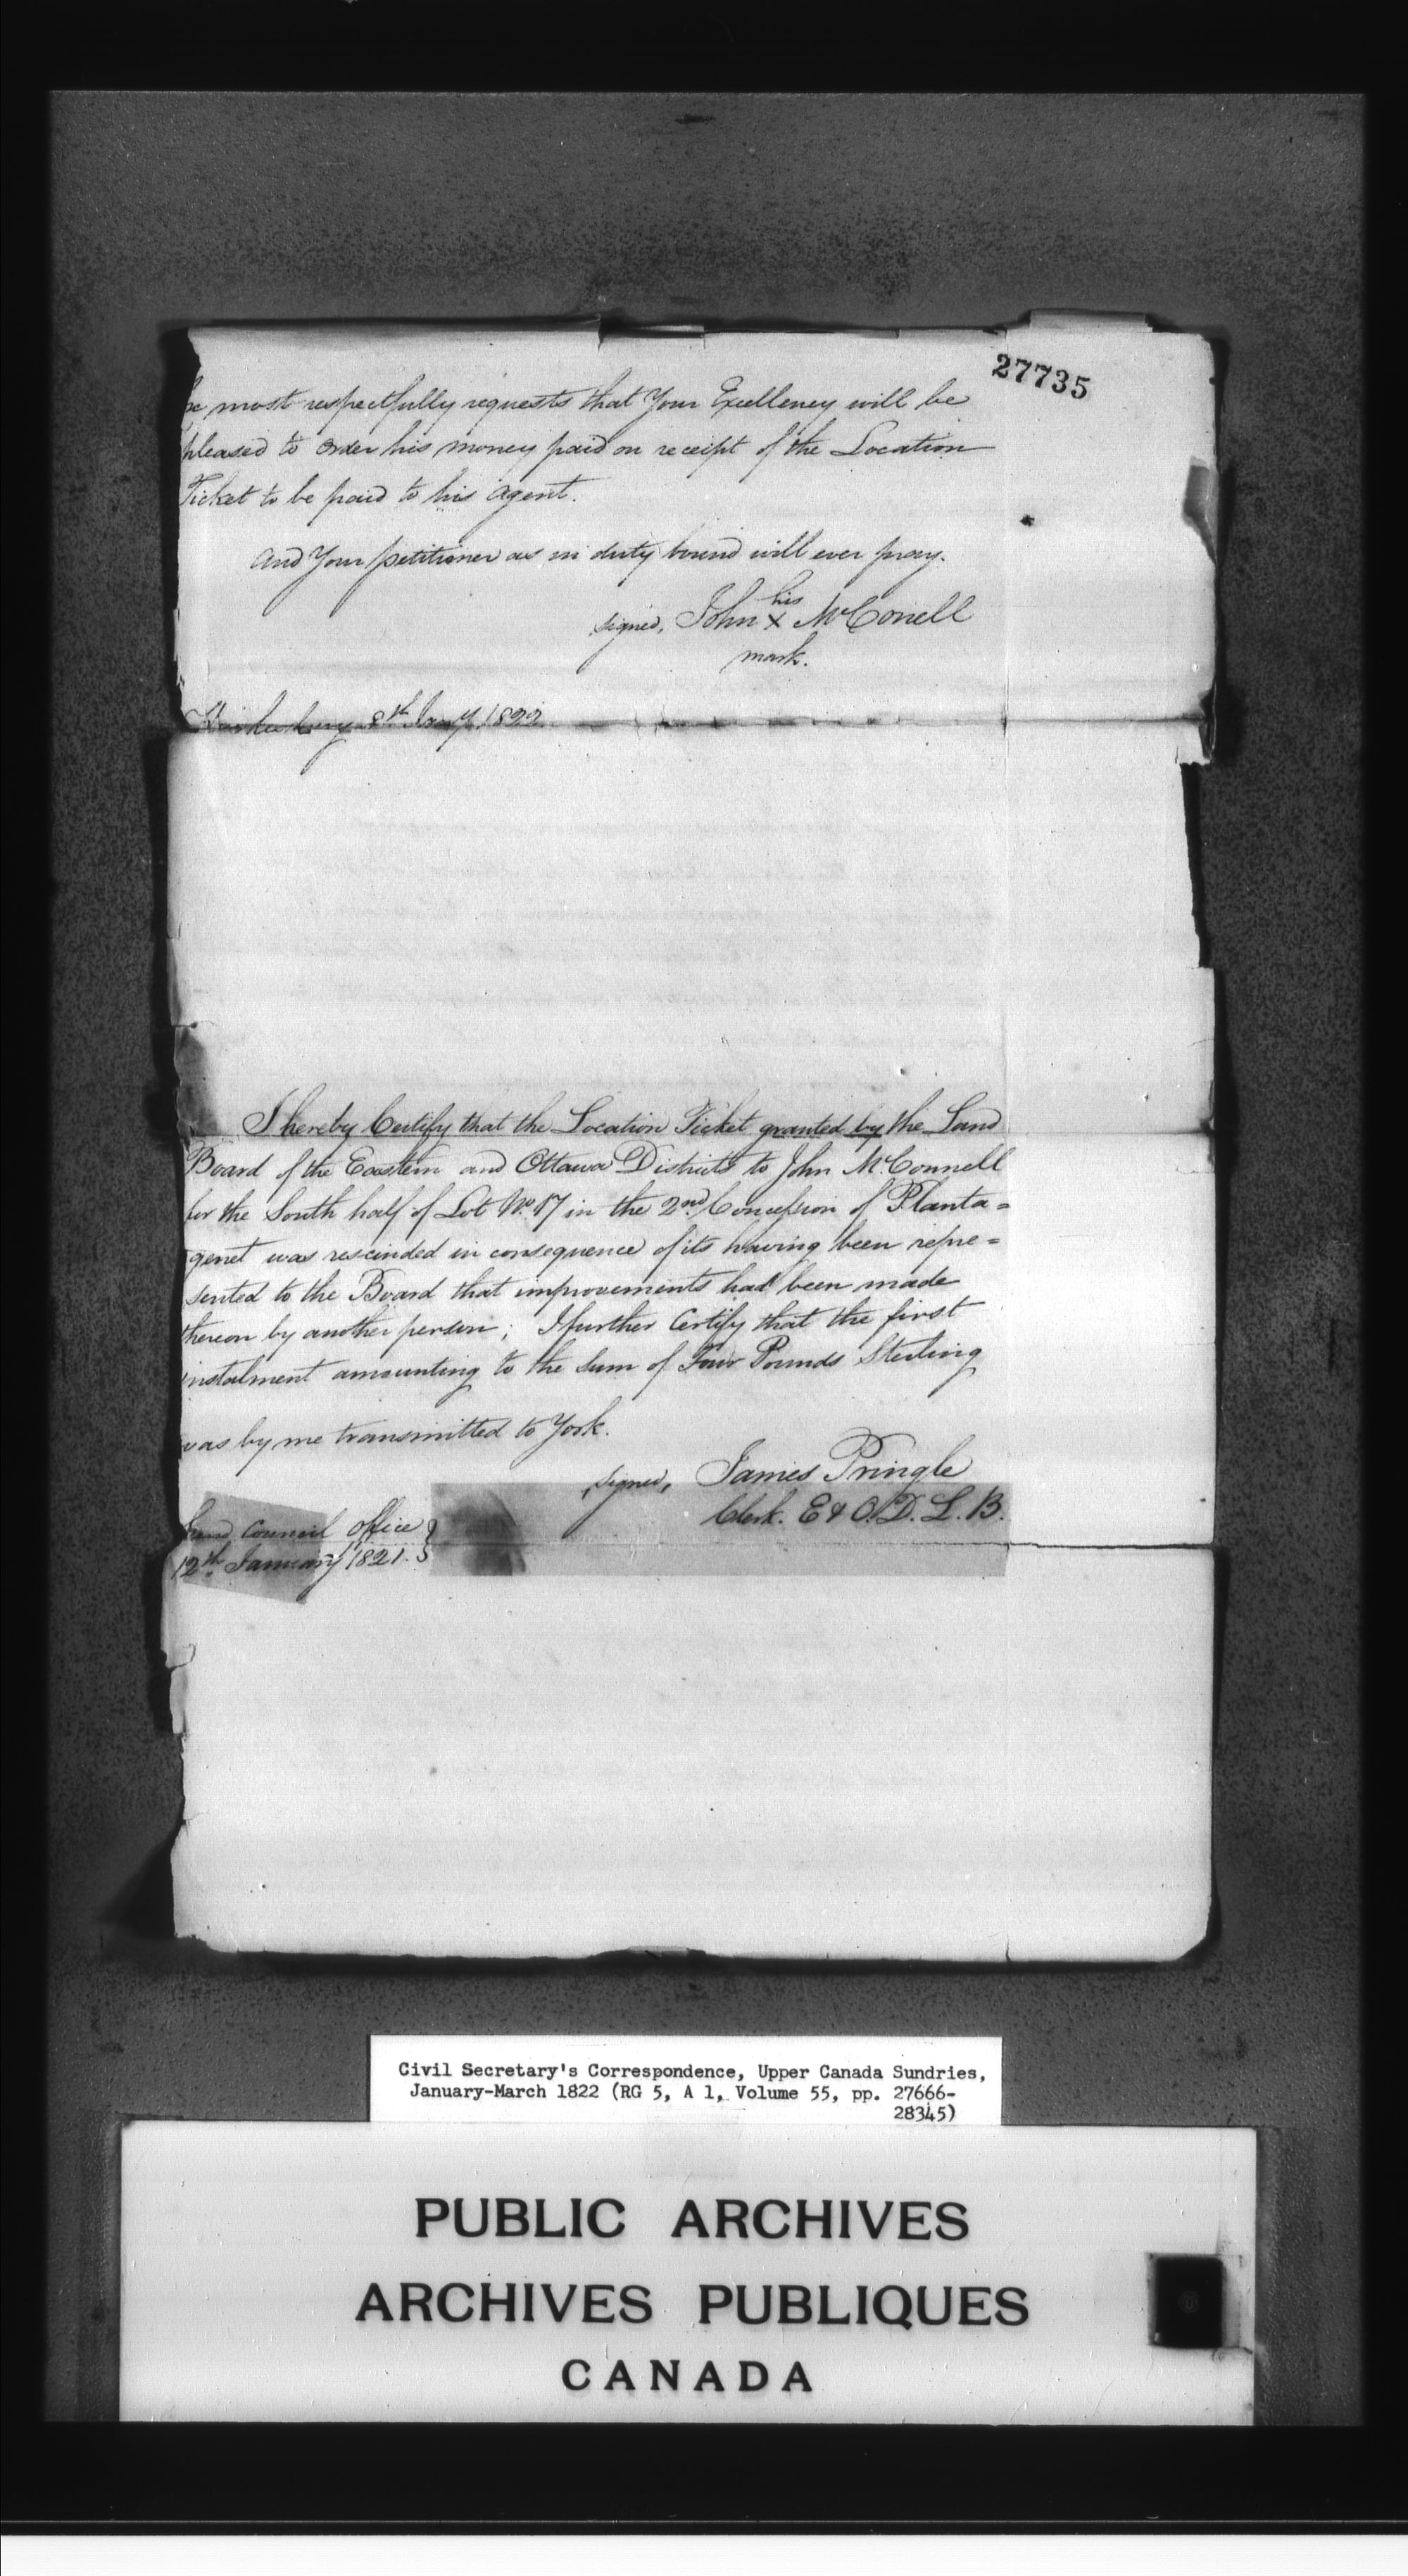 27735
he most respectfully requests that Your Excellency will be
pleased to order his money paid on receipt of the Location
Ticket to be paid to his Agent.
And Your petitioner as in duty bound will ever pray.
his
signed, John X McConell
mark.
Hawkesbury 8th Jany 1822
I hereby Certify that the Location Ticket granted by the Land
Board of the Eastern and Ottawa Districts to John McConnell
for the South half of Lot No. 17 in the 2nd Concession of Planta=
genet was rescinded in consequence of its having been repre=
sented to the Board that improvements had been made
thereon by another person; I further Certify that the first
instalment amounting to the Sum of Four Pounds Sterling
was by me transmitted to York.
signed, James Pringle
Clerk. E & O. D. L. B.
Land Council Office
12th January 1821.
Civil Secretary's Correspondence, Upper Canada Sundries,
January-March 1822 (RG 5, A 1, Volume 55, pp. 27666-
28345)
PUBLIC ARCHIVES
ARCHIVES PUBLIQUES
CANADA